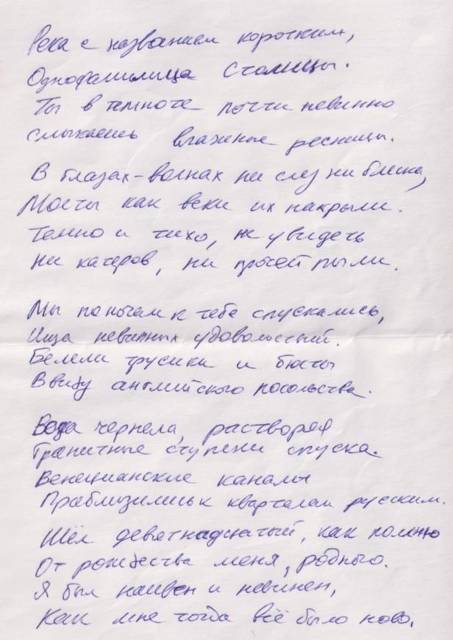 Река с названием коротким,
Однофамилица столицы.
Ты в темноте почти невинно
Смыкаешь влажные ресницы.
В глазах-волнах ни слез ни блика,
Мосты как веки их накрыли.
Темно и тихо, не увидеть
Ни катеров, ни прочей пыли.
Мы по ночам к тебе спускались,
Ища невинных удовольствий.
Белели трусики и бюсты
Ввиду английского посольства.
Вода чернела, растворяя
Гранитные ступени спуска.
Венецианские каналы
Приблизились к кварталам русским.
Шёл девятнадцатый, как помню
От рождества меня, родного.
Я был наивен и невинен,
Как мне тогда всё было ново.